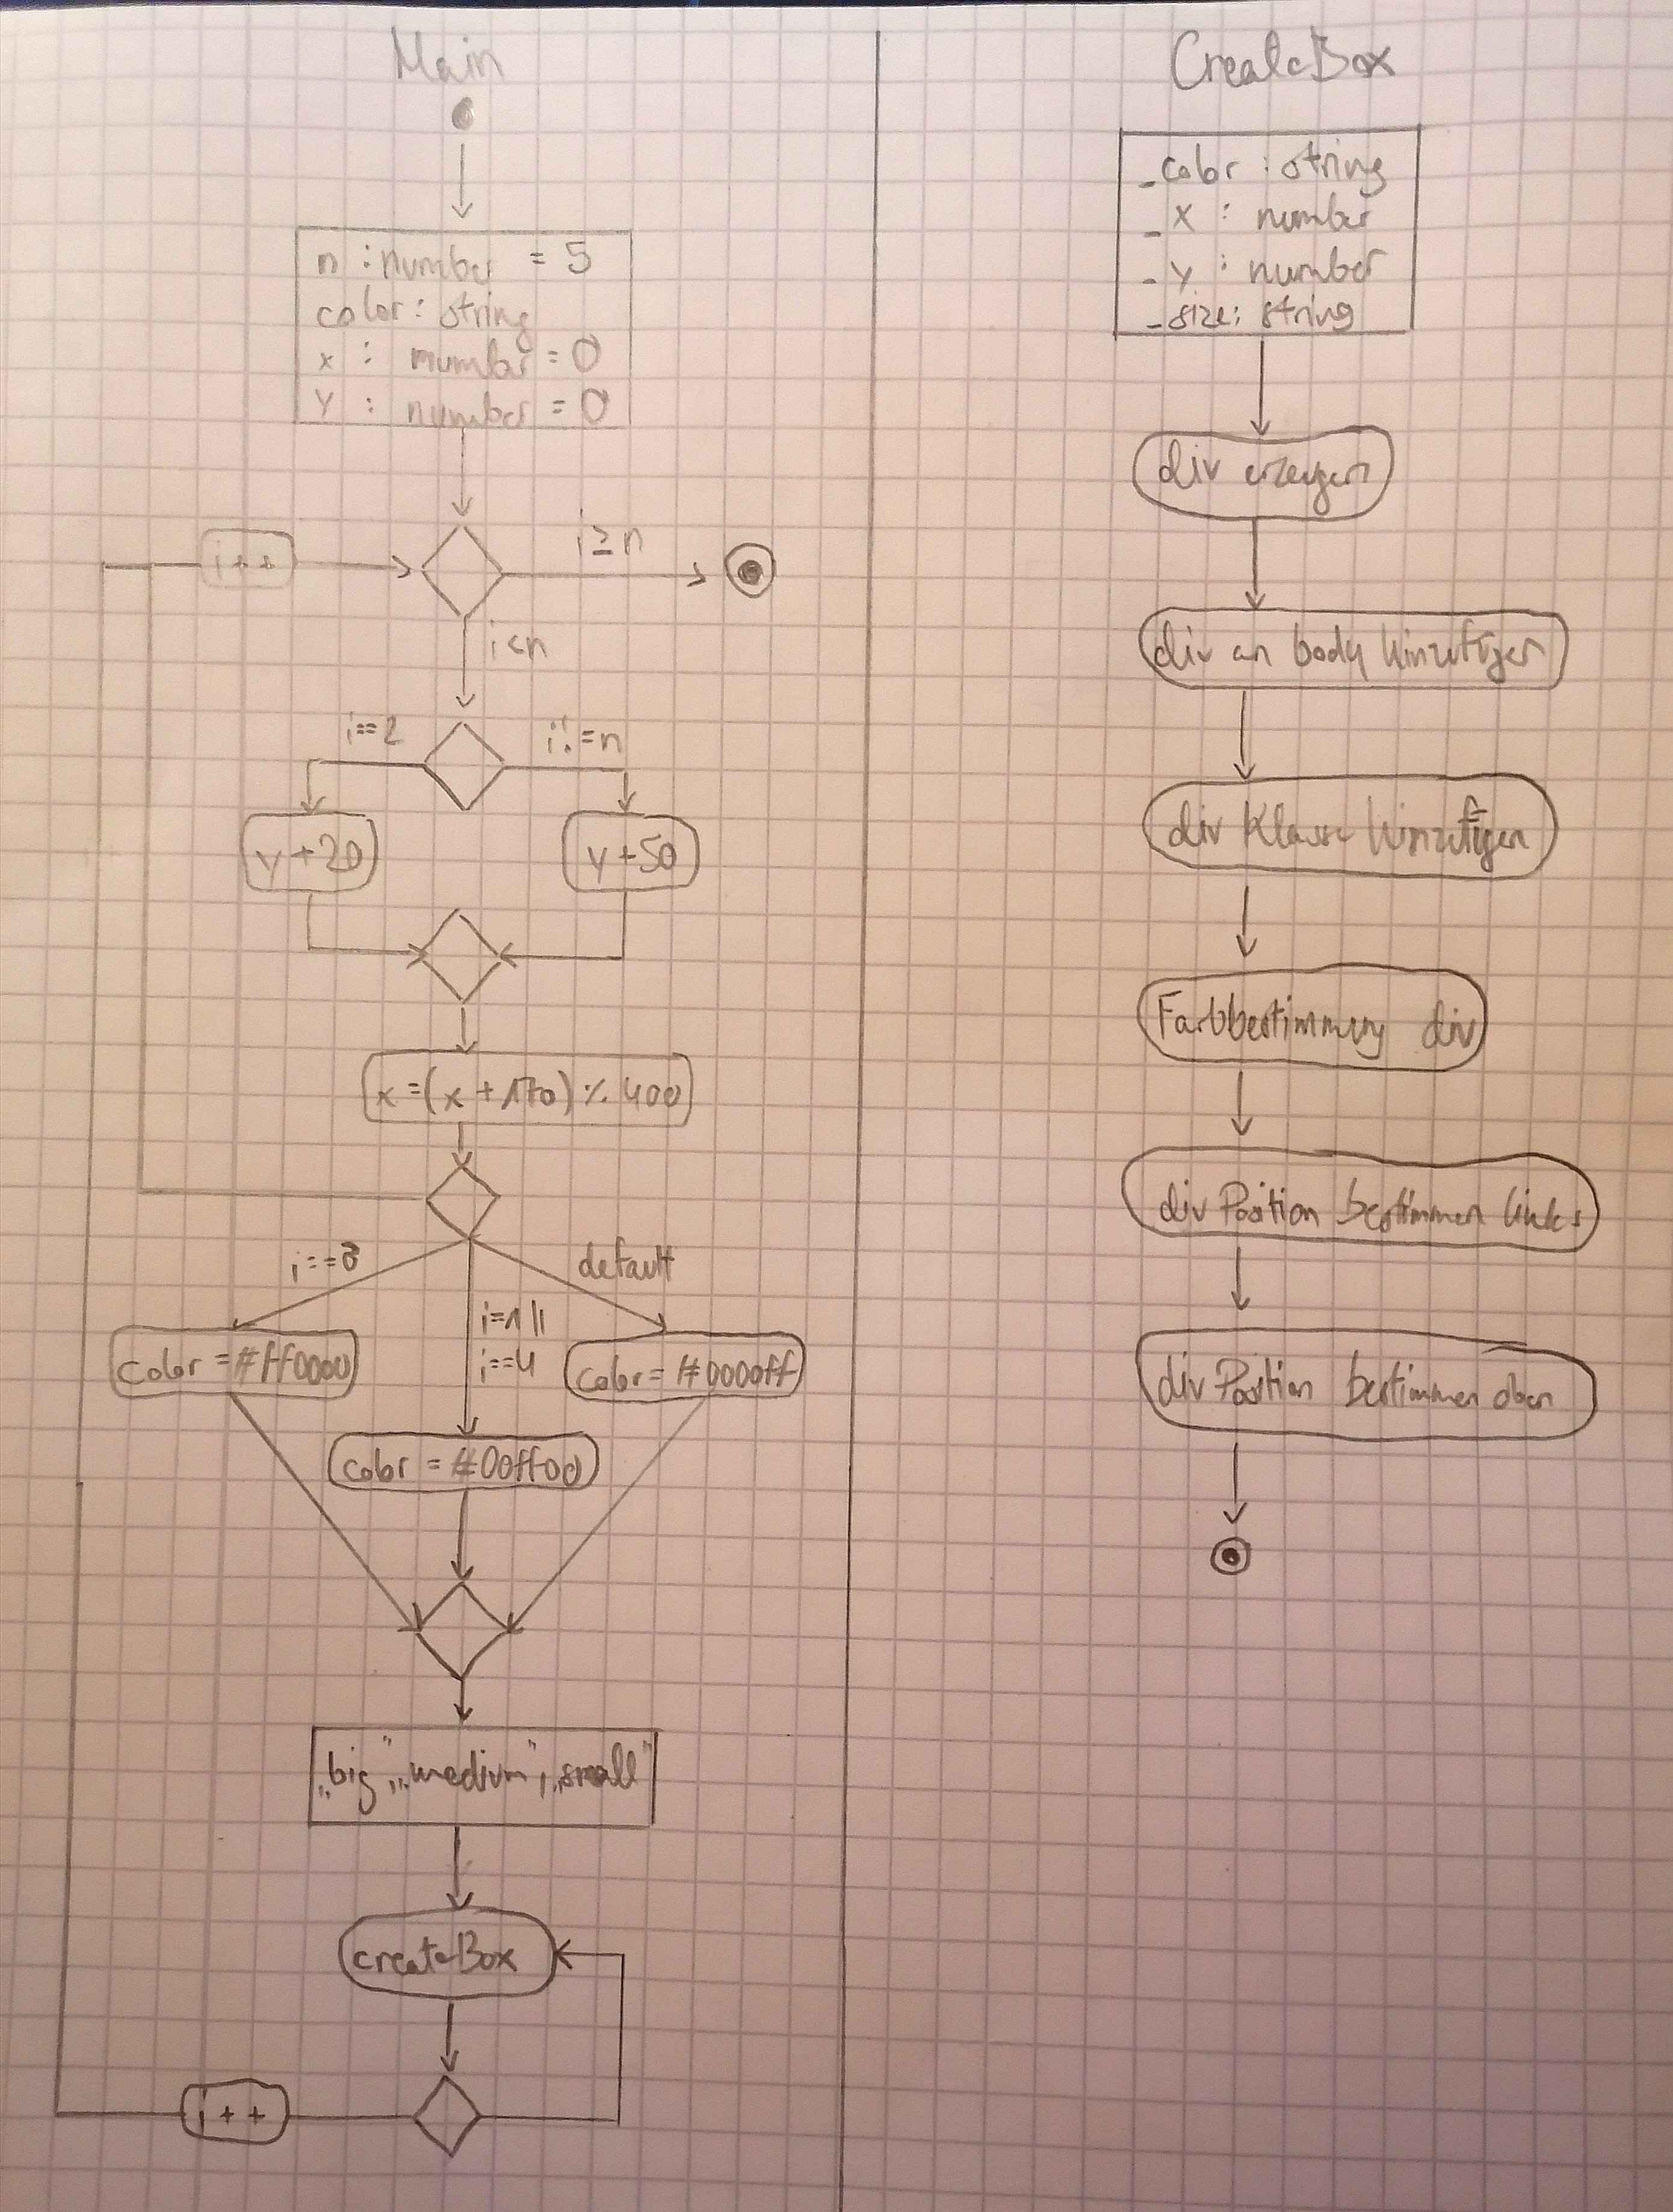 Main
n : number = 5
color : string
x : number = 0
y : number = 0
i++
i≥n
i<n
i==2
i!=n
y+20
y+50
x=(x+170)%400
i==3
default
i=1||
i==4
color=#ff0000
color=#0000ff
color = #00ff00
„big",„medium",„small"
createBox
i++
CreateBox
_color : string
_x : number
_y : number
_size: string
div erzeugen
div an body hinzufügen
div Klasse hinzufügen
Farbbestimmung div
div Position bestimmen links
div Position bestimmen oben